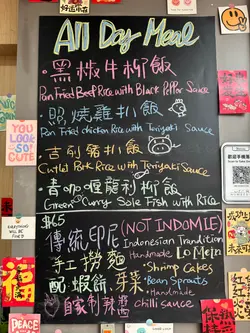 All Day Meal
·黑椒牛柳飯
Pan Fried Beef Rice with Black Pepper Sauce
·照燒雞扒飯
Pan Fried chicken Rice with Teriyaki Sauce
·吉列豬扒飯
Cutlet Pork Rice with Teriyaki Sauce
·青咖喱龍利柳飯
Green Curry Sole Fish with Rice
傳統印尼 (NOT INDOMIE)
Indonesian Tradition
手工撈麵 Handmade Lo Mein
配蝦餅 芽菜
·Shrimp Cakes
·Bean Sprouts
·Handmade
自家制辣醬 chilli sauce
YOU
LOOK
SO!
CUTE
EVERYTHING
WILL BE
FINE
PEACE
福